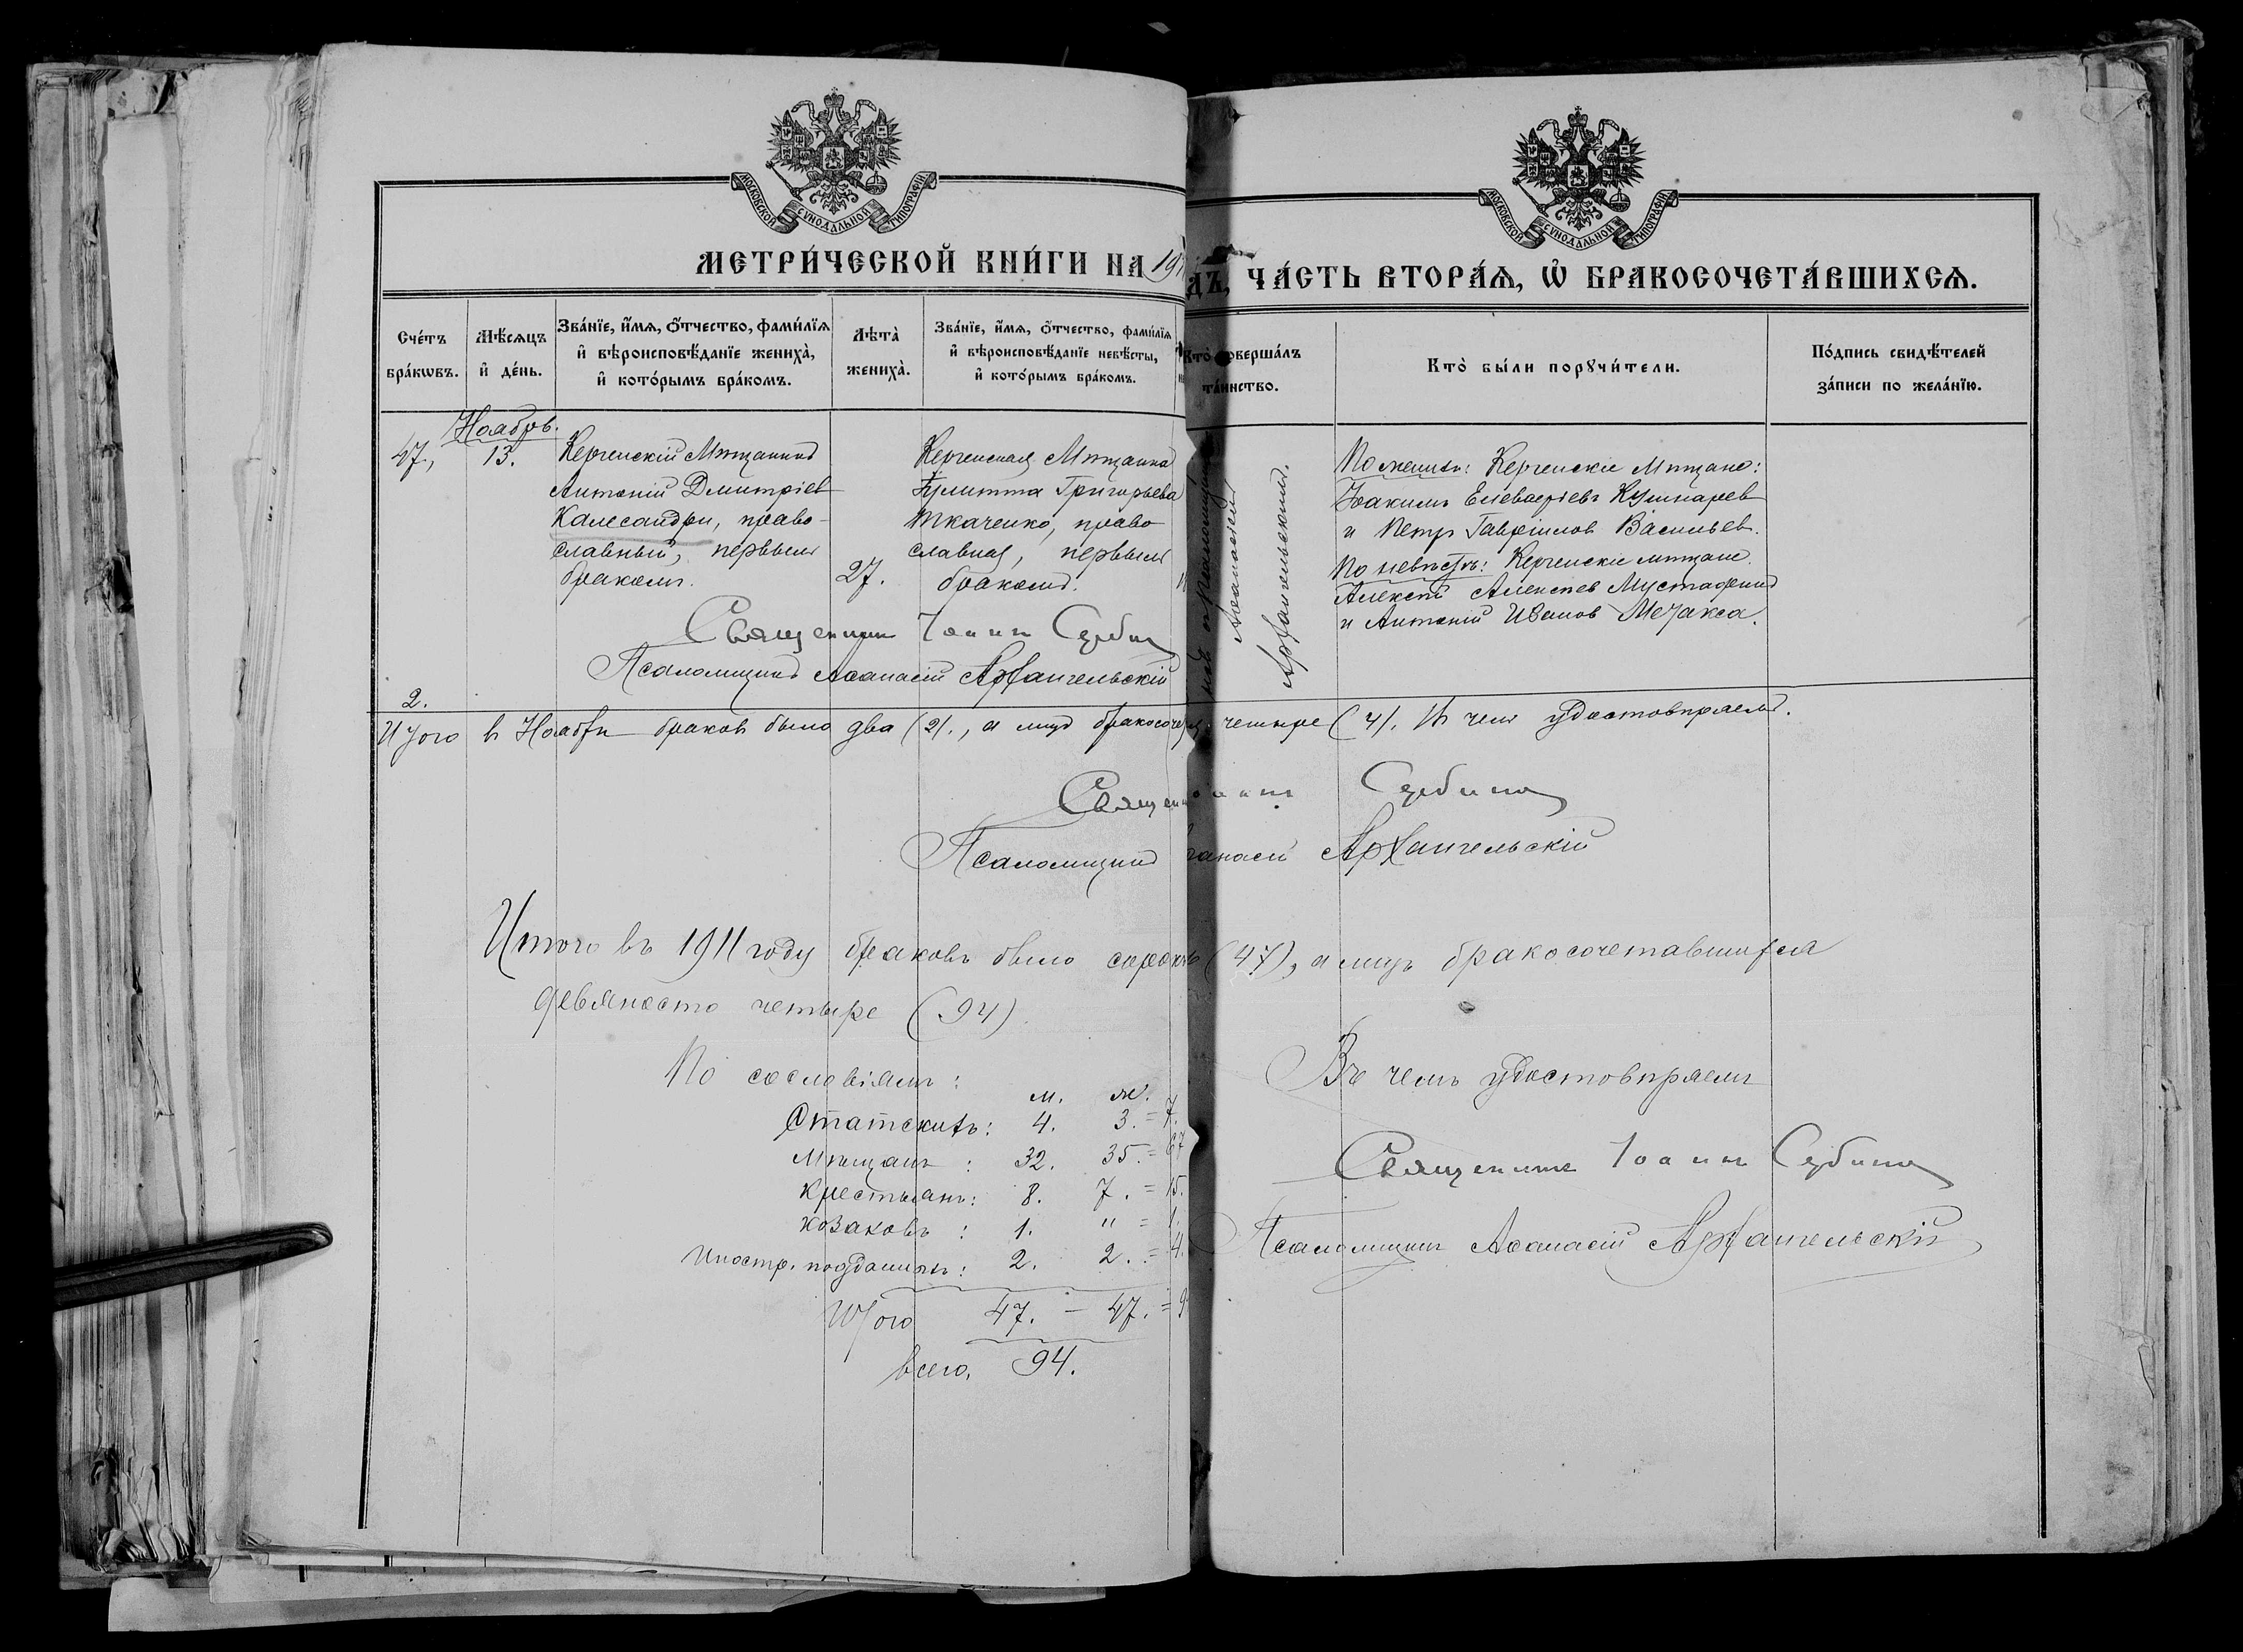 МОСКОВСКОЙ СѴНОДАЛЬНОЙ ТИПОГРАФІИ
МОСКОВСКОЙ СѴНОДАЛЬНОЙ ТИПОГРАФІИ
МЕТРИ́ЧЕСКОЙ КНИ́ГИ НА 19
ДЪ, ЧА́СТЬ ВТОРА́Я, Ѿ БРАКОСОЧЕТА́ВШИХСЯ.
Сче́тъ бра́кѡвъ.
Мѣ́сяцъ и҆ де́нь.
Зва́нїе, и҆́мя, ѻ҆́тчество, фами́лїя и҆ вѣроисповѣ́данїе жениха̀, и҆ кото́рымъ бра́комъ.
Лѣта̀ жениха̀.
Зва́нїе, и҆́мя, ѻ҆́тчество, фами́лїя и҆ вѣроисповѣ́данїе невѣ́сты, и҆ кото́рымъ бра́комъ.
Кто̀ соверша́лъ та́инство.
Кто̀ бы́ли порꙋчи́тели.
По́дпись свидѣ́телей за́писи по жела́нїю.
Ноябрь.
47, 13.
Керченскій Мѣщанинъ
Антоній Дмитріев
Калесандри, право-
славный, первымъ
бракомъ.
27.
Керченская Мѣщанка
Григорьева
Ткаченко, право
славная, первымъ
бракомъ.
Аѳанасій
Архангельскій.
По женихѣ: Керченскіе Мѣщане:
Іоакимъ Елевферіевъ Кушнарев
и Петръ Гавріилов Васильев.
По невѣстѣ: Керченскіе мѣщане
Алексѣй Алексѣев Мустафинъ
и Антоній Иванов Метакса.
Священникъ Іоаннъ Сербин
Псаломщикъ Аѳанасій Архангельскій
2.
Итого в Ноябрѣ браков было два (2)., а лицъ бракосоче четыре (4). В чем удостовѣряемъ.
Священ Сербинъ
Псаломщикъ Архангельскій
Итого въ 1911 году браковъ было сорокъ (47), а лицъ бракосочетавшихся
девяносто четыре (94)
По сословіямъ:
м. ж.
Статскихъ: 4. 3. = 7.
Мѣщанъ : 32. 35. = 67
Крестьянъ: 8. 7. = 15.
Козаковъ : 1. " = 1.
Иностр. подданныхъ: 2. 2. = 4.
Итого 47. – 47. = 9
Всего. 94.
Въ чемъ удостовѣряемъ
Священникъ Іоаннъ Сербинъ
Псаломщикъ Аѳанасій Архангельскій